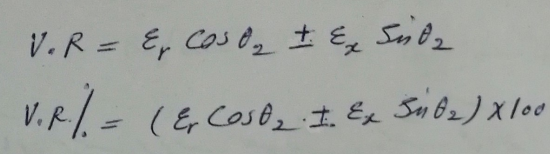 V.R = εr Cosθ2 ± εx Sinθ2
V.R% = (εr Cosθ2 ± εx Sinθ2) X100